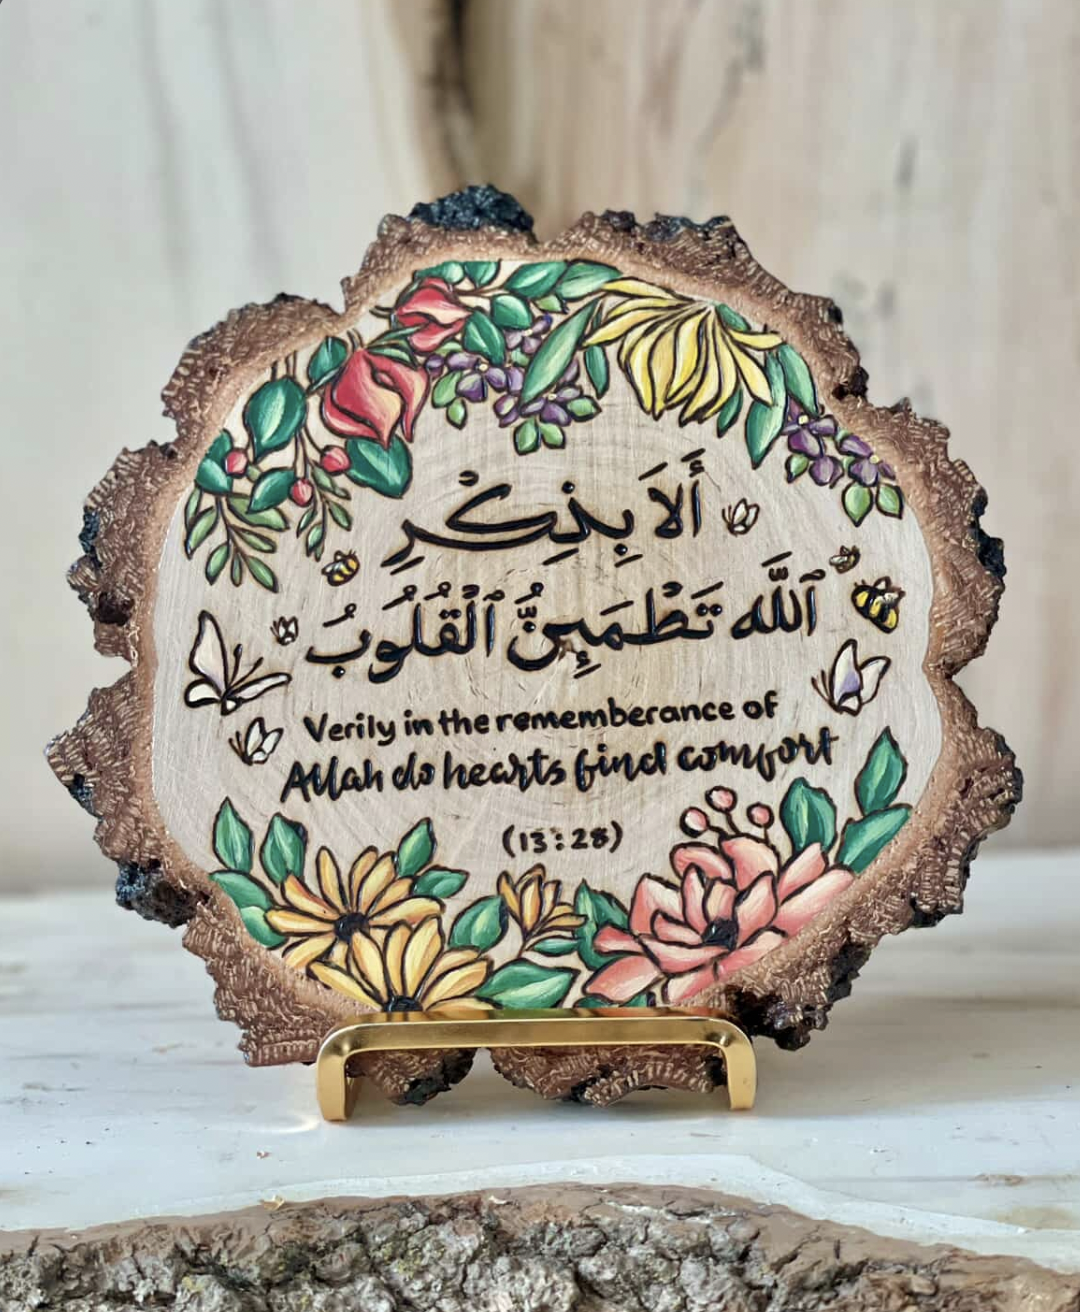 أَلَا بِذِكْرِ
ٱللَّه تَطْمَئِنُّ ٱلْقُلُوبُ
Verily in the rememberance of
Allah do hearts find comfort
(13:28)